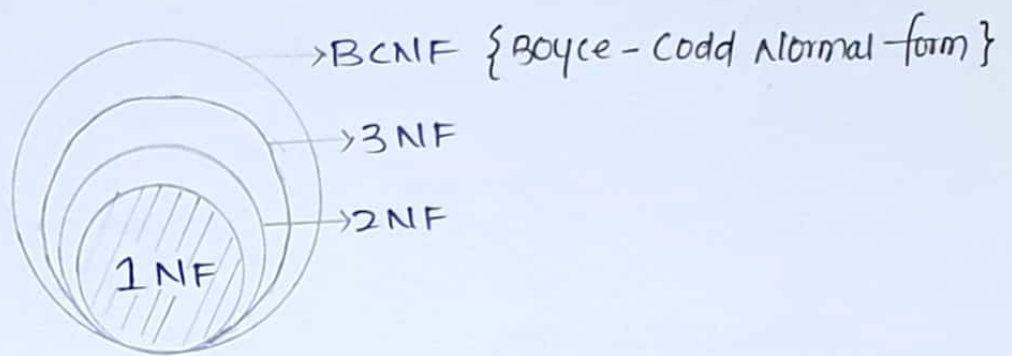 BCNF {Boyce-Codd Normal form}
3NF
2NF
1NF